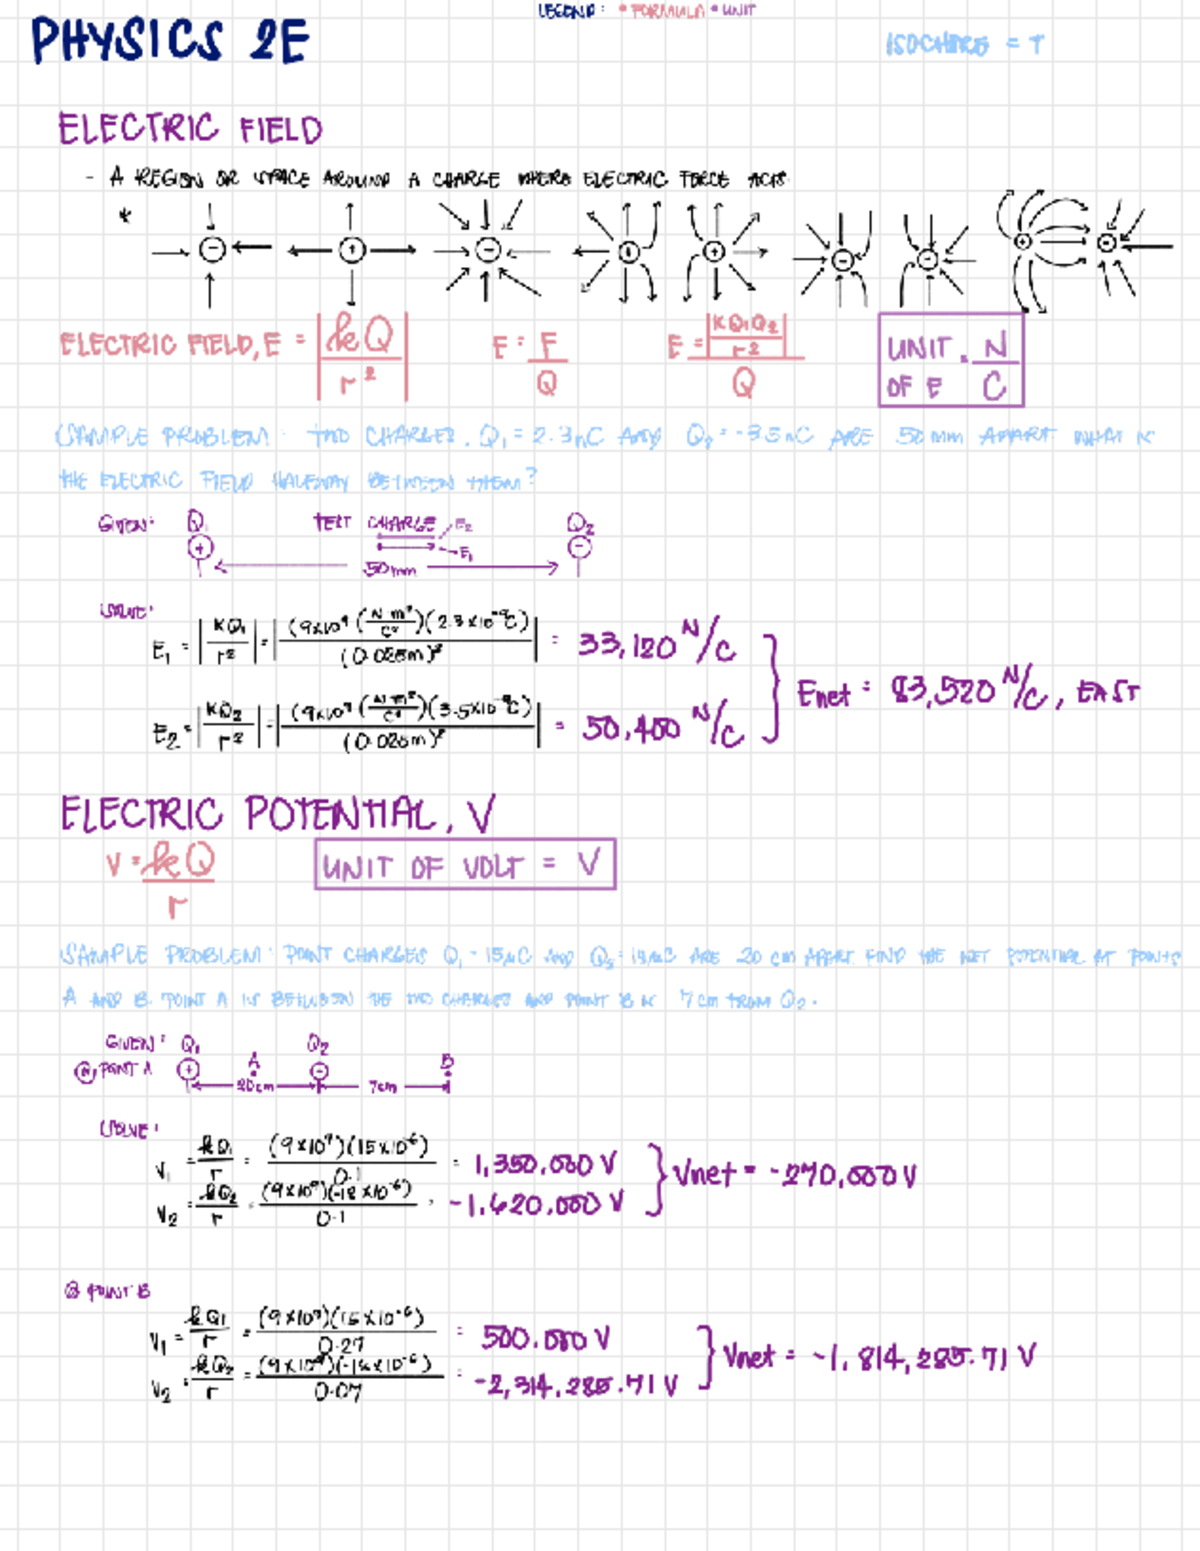 LEGEND: • FORMULA • UNIT
PHYSICS 2E
ISOCHORE = T
ELECTRIC FIELD
- A REGION OR SPACE AROUND A CHARGE WHERE ELECTRIC FORCE ACTS.
*
ELECTRIC FIELD, E = |kQ / r²|   E = F / Q   E = |kQ₁Q₂ / r²| / Q   UNIT OF E = N / C
SAMPLE PROBLEM: TWO CHARGES, Q₁ = 2.3nC AND Q₂ = -3.5nC ARE 50mm APART WHAT IS
THE ELECTRIC FIELD HALFWAY BETWEEN THEM?
GIVEN: Q₁ TEST CHARGE E₂ Q₂
+ E₁ −
50mm
SOLVE:
E₁ = |kQ₁ / r²| = |(9x10⁹ (N·m² / C²)(2.3x10⁻⁹C) / (0.025m)²| = 33,120 N/C
Enet = 83,520 N/C, EAST
E₂ = |kQ₂ / r²| = |(9x10⁹ (N·m² / C²)(3.5x10⁻⁹C) / (0.025m)²| = 50,400 N/C
ELECTRIC POTENTIAL, V
V = kQ / r   UNIT OF VOLT = V
SAMPLE PROBLEM: POINT CHARGES Q₁ = 15μC AND Q₂ = 18μC ARE 20 cm APART FIND THE NET POTENTIAL AT POINTS
A AND B. POINT A IS BETWEEN THE TWO CHARGES AND POINT B IS 7cm FROM Q₂.
GIVEN: Q₁ Q₂
@ POINT A + A − B
20cm 7cm
SOLVE:
V₁ = kQ₁ / r = (9x10⁹)(15x10⁻⁶) / 0.1 = 1,350,000 V
Vnet = -270,000 V
V₂ = kQ₂ / r = (9x10⁹)(-18x10⁻⁶) / 0.1 = -1,620,000 V
@ POINT B
V₁ = kQ₁ / r = (9x10⁹)(15x10⁻⁶) / 0.27 = 500,000 V
Vnet = -1,814,285.71 V
V₂ = kQ₂ / r = (9x10⁹)(-18x10⁻⁶) / 0.07 = -2,314,285.71 V